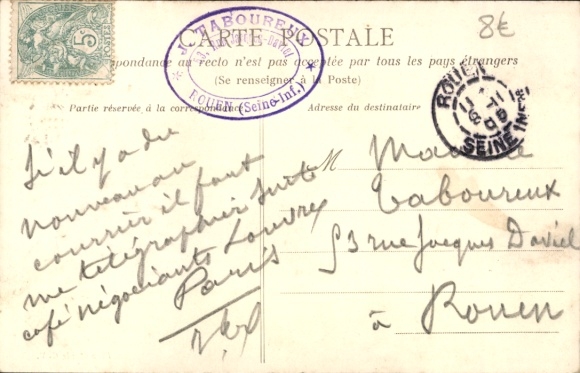 8€
5c
J. TABOUREUX
ROUEN (Seine-Inf.)
CARTE POSTALE
La Correspondance au recto n'est pas acceptée par tous les pays étrangers
(Se renseigner à la Poste)
Partie réservée à la correspondance
Adresse du destinataire
ROUEN
SEINE INFRE
S'il y a du
nouveau au
courrier il faut
me télégraphier suite
café négociants Louvre
Paris
M Madame
Taboureux
53 rue Jacques Daviel
à Rouen